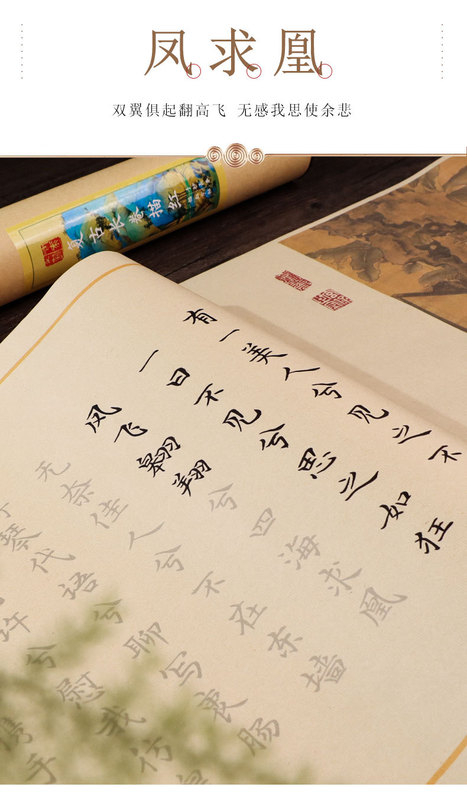 凤求凰
双翼俱起翻高飞 无感我思使余悲
复古长卷描红
有一美人兮见之不
一日不见兮思之如狂
凤飞翱翔兮四海求凰
无奈佳人兮不在东墙
琴代语兮聊写衷肠
许兮慰我彷
携手